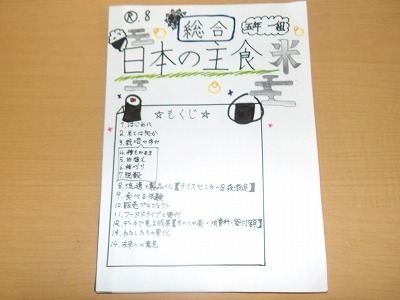 R.8
総合
五年一組
日本の主食 米
☆もくじ☆
1.はじめに
2.米とは何か
3.栽培の歩み
4.種もみまき
5.田植え
6.稲刈り
7.脱穀
8.流通・製品化【ライスセンター&森海道】
9.食べる体験
10.販売プロジェクト
11.フードドライブと寄付
12.データで見る成果
13.わたしたちの変化
14.未来への意見